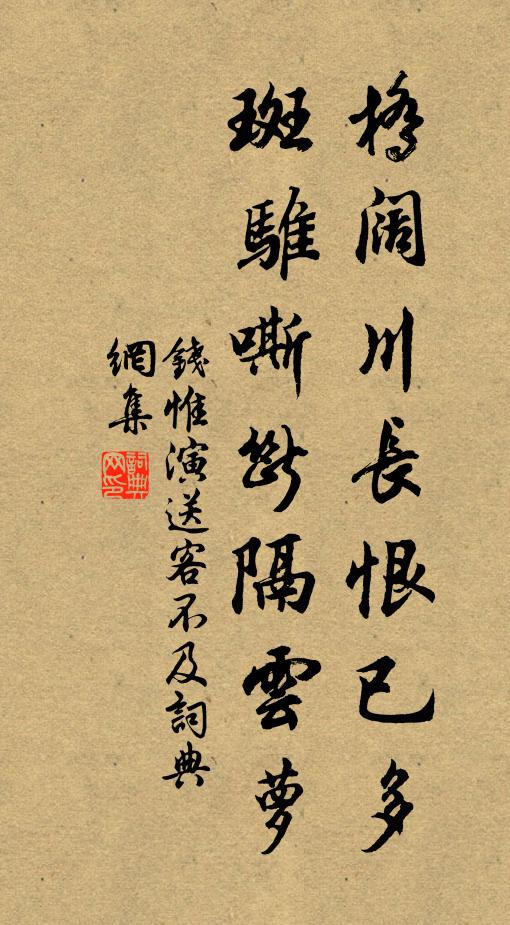 橋闊川長恨已多
斑騅嘶斷隔雲萝
錢惟演送客不及詞典
網集
詞典网印